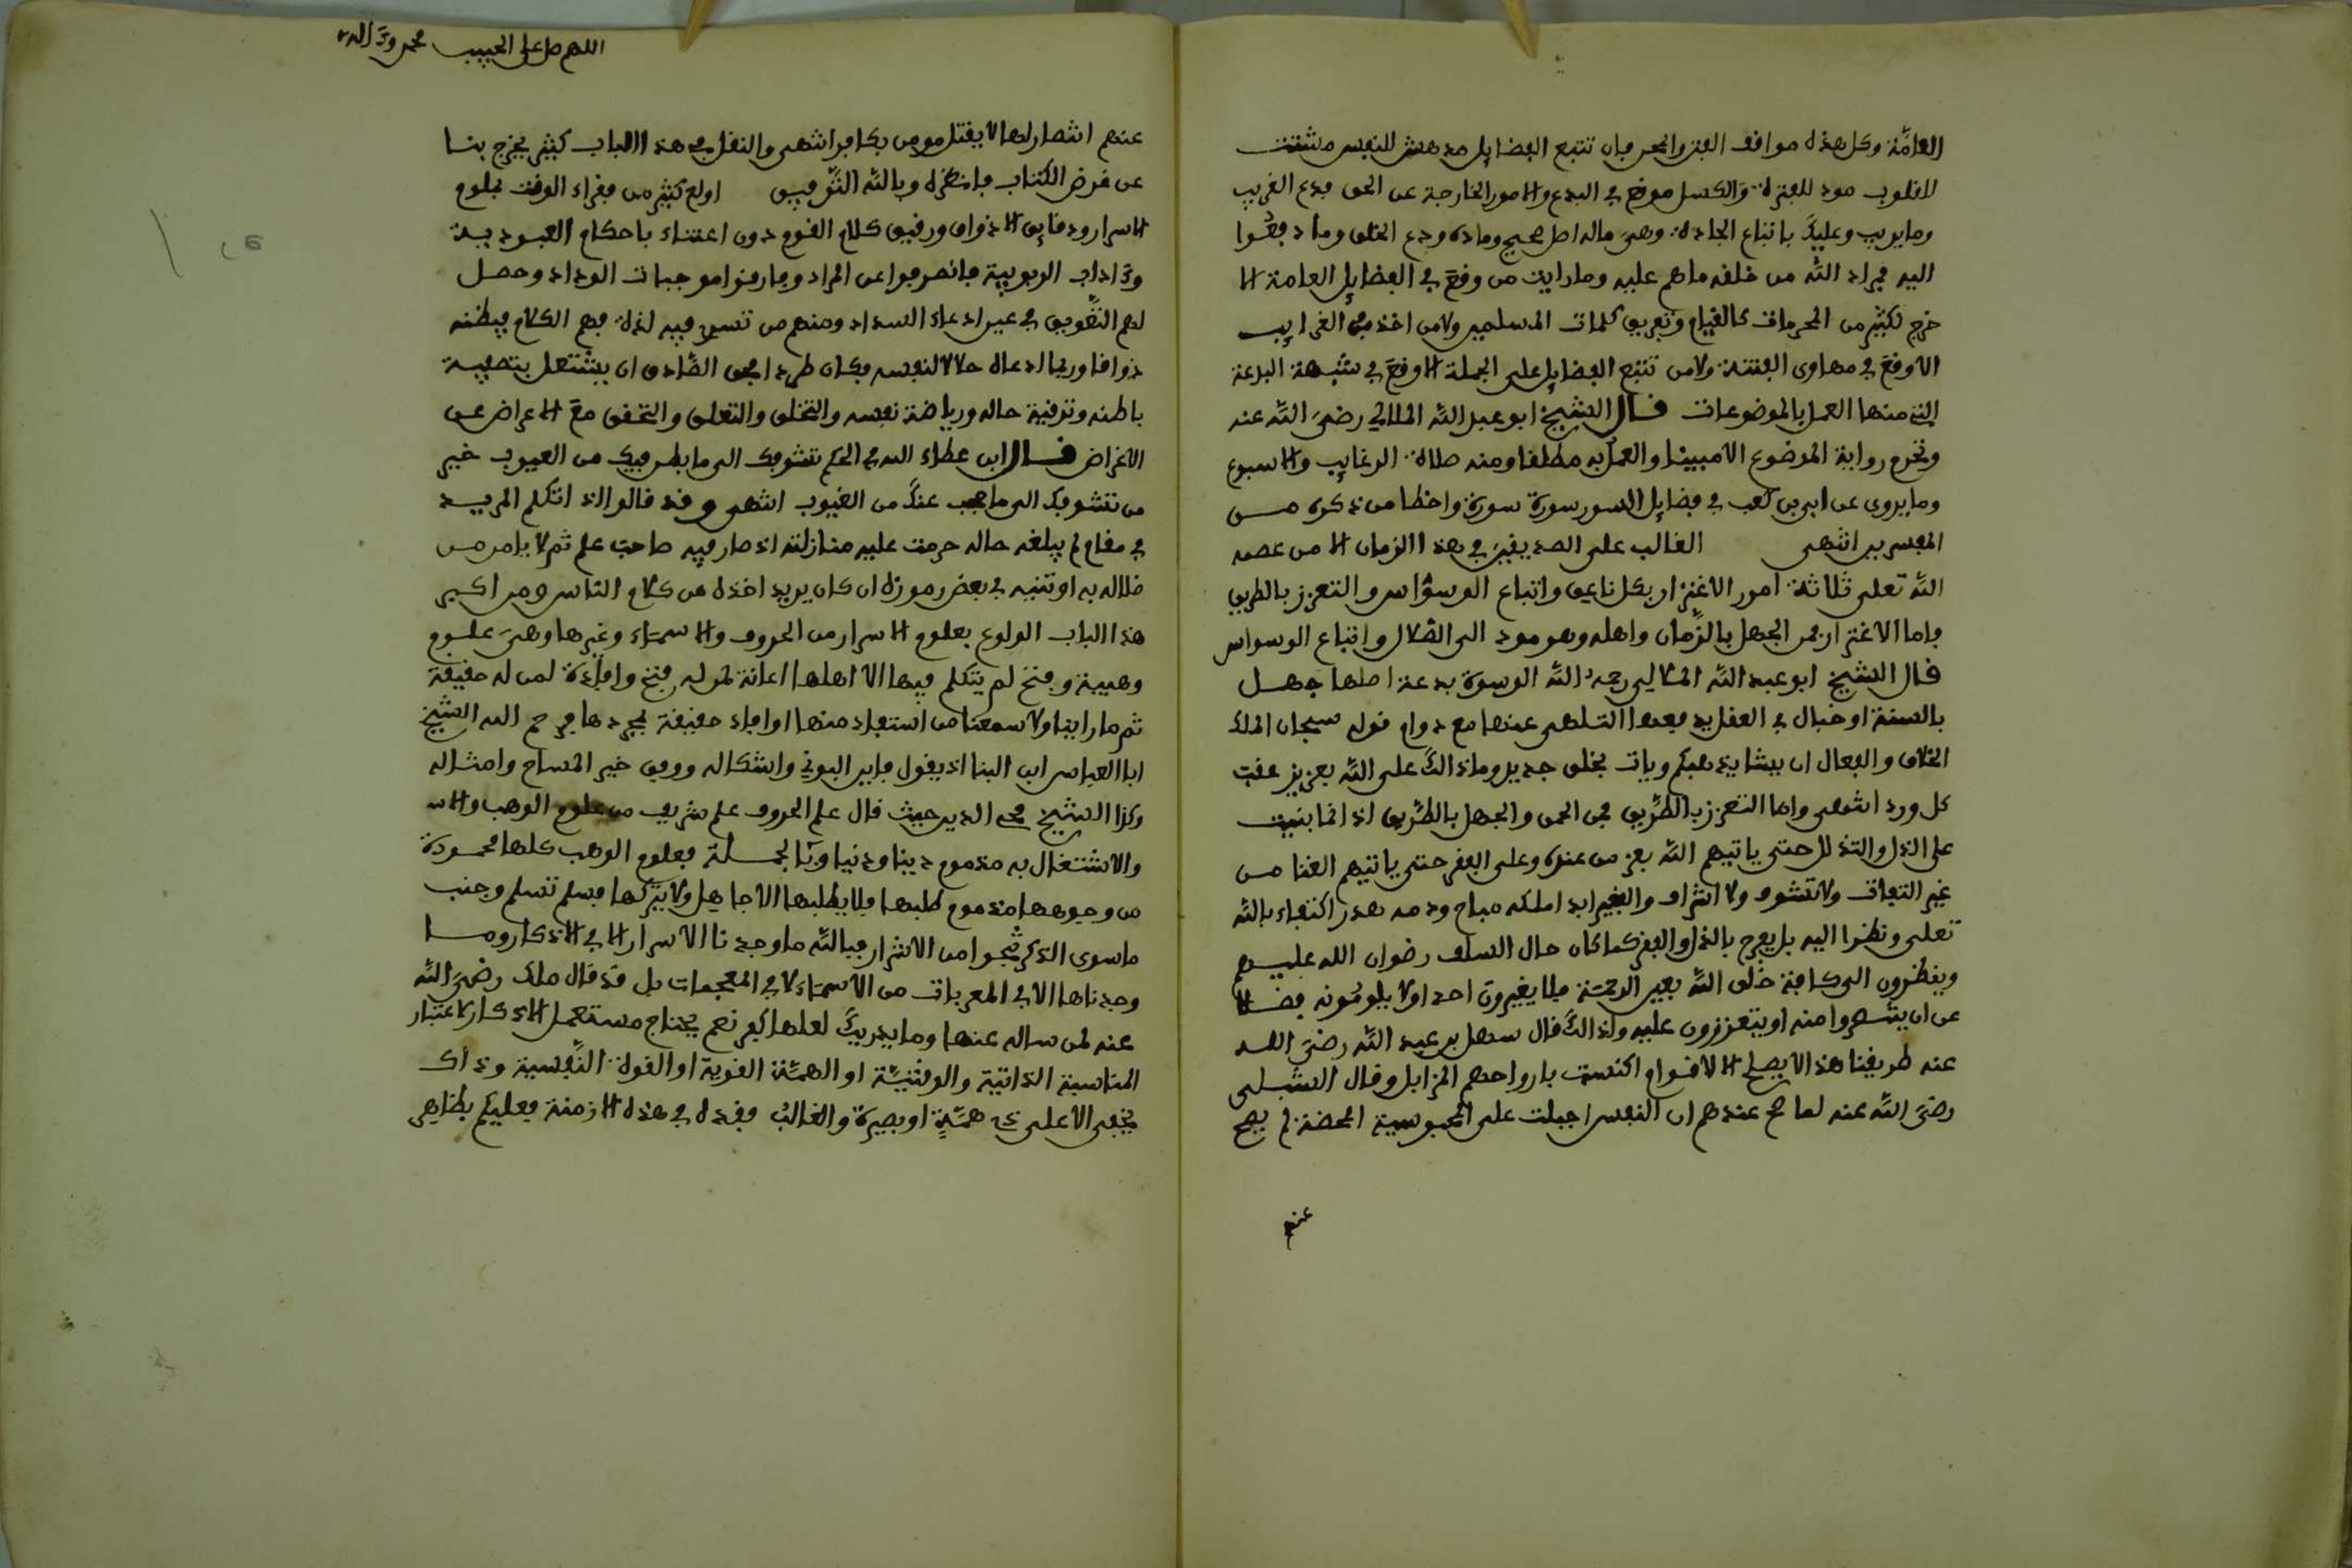 العامّة وكل هذه مواقف الفتر والمحر فإن تتبع الفضايل مدهش للنفس مشتت
للقلوب مود للفترة والكسل موقع في البدع والامور الخارجة عن الحق فدع الغريب
وما يريب وعليك باتباع الجادة وهي ماله اصل صحيح ومادة ودع الخلق وما دفعوا
اليه فمراد الله من خلقه ما هم عليه وما رايت من وقع في الفضايل العامة الا
خرج لكثير من المحرمات كالقيام وتفريق كلمات المسلمين ولا من اخذ في الغرايب
الا وقع في مهاوى الفتنة ولا من تتبع الفضايل على الجملة الا وقع في شبهة البدعة
التي منها العمل بالموضوعات قال الشيخ ابو عبد الله الملالي رضي الله عنه
وتحرم رواية الموضوع الا مبينا والعمل به مطلقا ومنه صلاة الرغايب والاسبوع
وما يروى عن ابي بن كعب في فضايل السور سورة سورة واخطا من ذكره مـن
المفسرين انتهى الغالب على الصديقين في هذا الزمان الا من عصمه
الله تعلى ثلاثة امور الاغترار بكل ناعق واتباع الوسواس والتعزز بالطريق
فاما الاغترار فمن الجهل بالزمان واهله وهو مود الى الضلال واتباع الوسواس
قال الشيخ ابو عبد الله الملالي رحمه الله الوسوة بدعة اصلها جهـل
بالسنة او خبال في العقل يدفعها التلهى عنها مع دوام قوله سبحان الملك
الخلاق والفعال ان يشا يذهبكم ويات بخلق جديد وما ذالك على الله بعزيز عقب
كل ورد انتهى واما التعزز بالطريق فمن الحمق والجهل بالطريق اذ انما بنيت
على الذل والتذلل حتى ياتيهم الله بعز من عنده وعلى الفقر حتى ياتيهم الغنا مـن
غير التفات ولا تشوف ولا اشراف والفقير ابدا ملكه مباح ودمه هدر اكتفاء بالله
تعلى ونظرا اليه بل يفرح بالذل والفقر كما كان حال السلف رضوان الله عليـهم
وينظرون الى كافة خلق الله بعين الرحمة فلا يغيرون احدا ولا يلومونه فضـلا
عن ان ينتصروا منه او يتعززون عليه ولذالك قال سهل بن عبد الله رضي اللـه
عنه طريقنا هذا لا يصلح الا لاقوام اكنست بارواحهم المزابل وقال الشبلى
رضي الله عنه لما صح عندهم ان النفس اجبلت على المجوسية المحضة لم يصح
عنهم
اللهم صل على الحبيب محمد وءاله
عنهم انتصار لها لا يقتل مومن بكافر انتهى والنقل في هذا الباب كثير يخرج بنـا
عن غرض الكتاب فانظره وبالله التوفيق اولع كثير من فقراء الوقت بعلوم
الاسرار ودقايق الاذواق ورقيق كلام القوم دون اعتناء باحكام العبوديـة
وءاداب الربوبية فانصرفوا عن المراد وفارقوا موجبات الوداد وحصل
لهم التعويق في عين ادعاء السداد ومنهم من تسرى فيه لذة فهم الكلام فيظنه
ذوقا وربما ادعاه حالا لنفسه فكان طردا فحق الصادق ان يشتغل بتصفيـة
باطنه وترقية حاله ورياضة نفسه والتخلق والتعلق والتحقق مع الاعراض عـن
الاغراض قال ابن عطاء الله في الحكم تشوفك الى ما بطن فيك من العيوب خير
من تشوفك الى ما حجب عنك من الغيوب انتهى وقد قالوا اذا تكلم المريـد
في مقام لم يبلغه حاله حرمت عليه منازلته اذ صار فيه صاحب علم ثم لا يامن مـن
ضلاله به او تنبه في بعض رموزه ان كان يريد اخذه من كلام الناس ومن اكبر
هذا الباب الولوع بعلوم الاسرار من الحروف والاسماء وغيرها وهي علـوم
وهبية وفتح لم يتكلم فيها الا اهلها اعانة لمن له فتح وافادة لمن له حقيقة
ثم ما راينا ولا سمعنا من استفاد منها او افاد حقيقة بمجردها فرحم الله الشيخ
ابا العباس ابن البنا اذ يقول فاين البوني واشكاله ووفق خير النساج وامثاله
وكذا الشيخ محي الدين حيث قال علم الحروف علم شريف من علوم الوهب والا
والاشتغال به مذموم دينا ودنيا وبالجمـلة فعلوم الوهب كلها محمـودة
من وجوهها مذموم طلبها فلا يطلبها الا جاهل ولا يتركها فسلم تسلم وجنب
ما سوى الذكر تنجوا من الاشرار فبالله ما وجدنا الاسرار الا في الاذكار ومـا
وجدناها الا في المعربات من الاسماء لا في المعجمات بل قد قال ملك رضي الله
عنه لمن ساله عنها وما يدريك لعلها كفر نعم يحتاج مستعمل الاذكار لاعتبار
المناسبة الذاتية والوقتية او الهمة القوية او القوة النفسية وذاك
يخفى الا على ذي همة او بصيرة والغالب فقده في هذه الازمنة فعليكم بظاهر